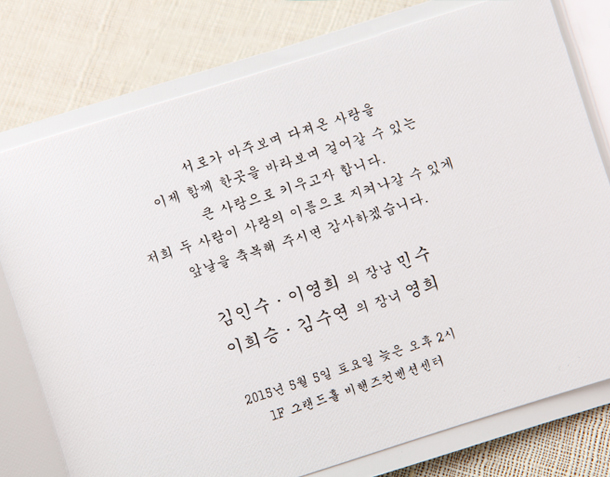 서로가 마주보며 다져온 사랑을
이제 함께 한곳을 바라보며 걸어갈 수 있는
큰 사랑으로 키우고자 합니다.
저희 두 사람이 사랑의 이름으로 지켜나갈 수 있게
앞날을 축복해 주시면 감사하겠습니다.
김인수 · 이영희 의 장남 민수
이희승 · 김수연 의 장녀 영희
2015년 5월 5일 토요일 늦은 오후 2시
1F 그랜드홀 비핸즈컨벤션센터